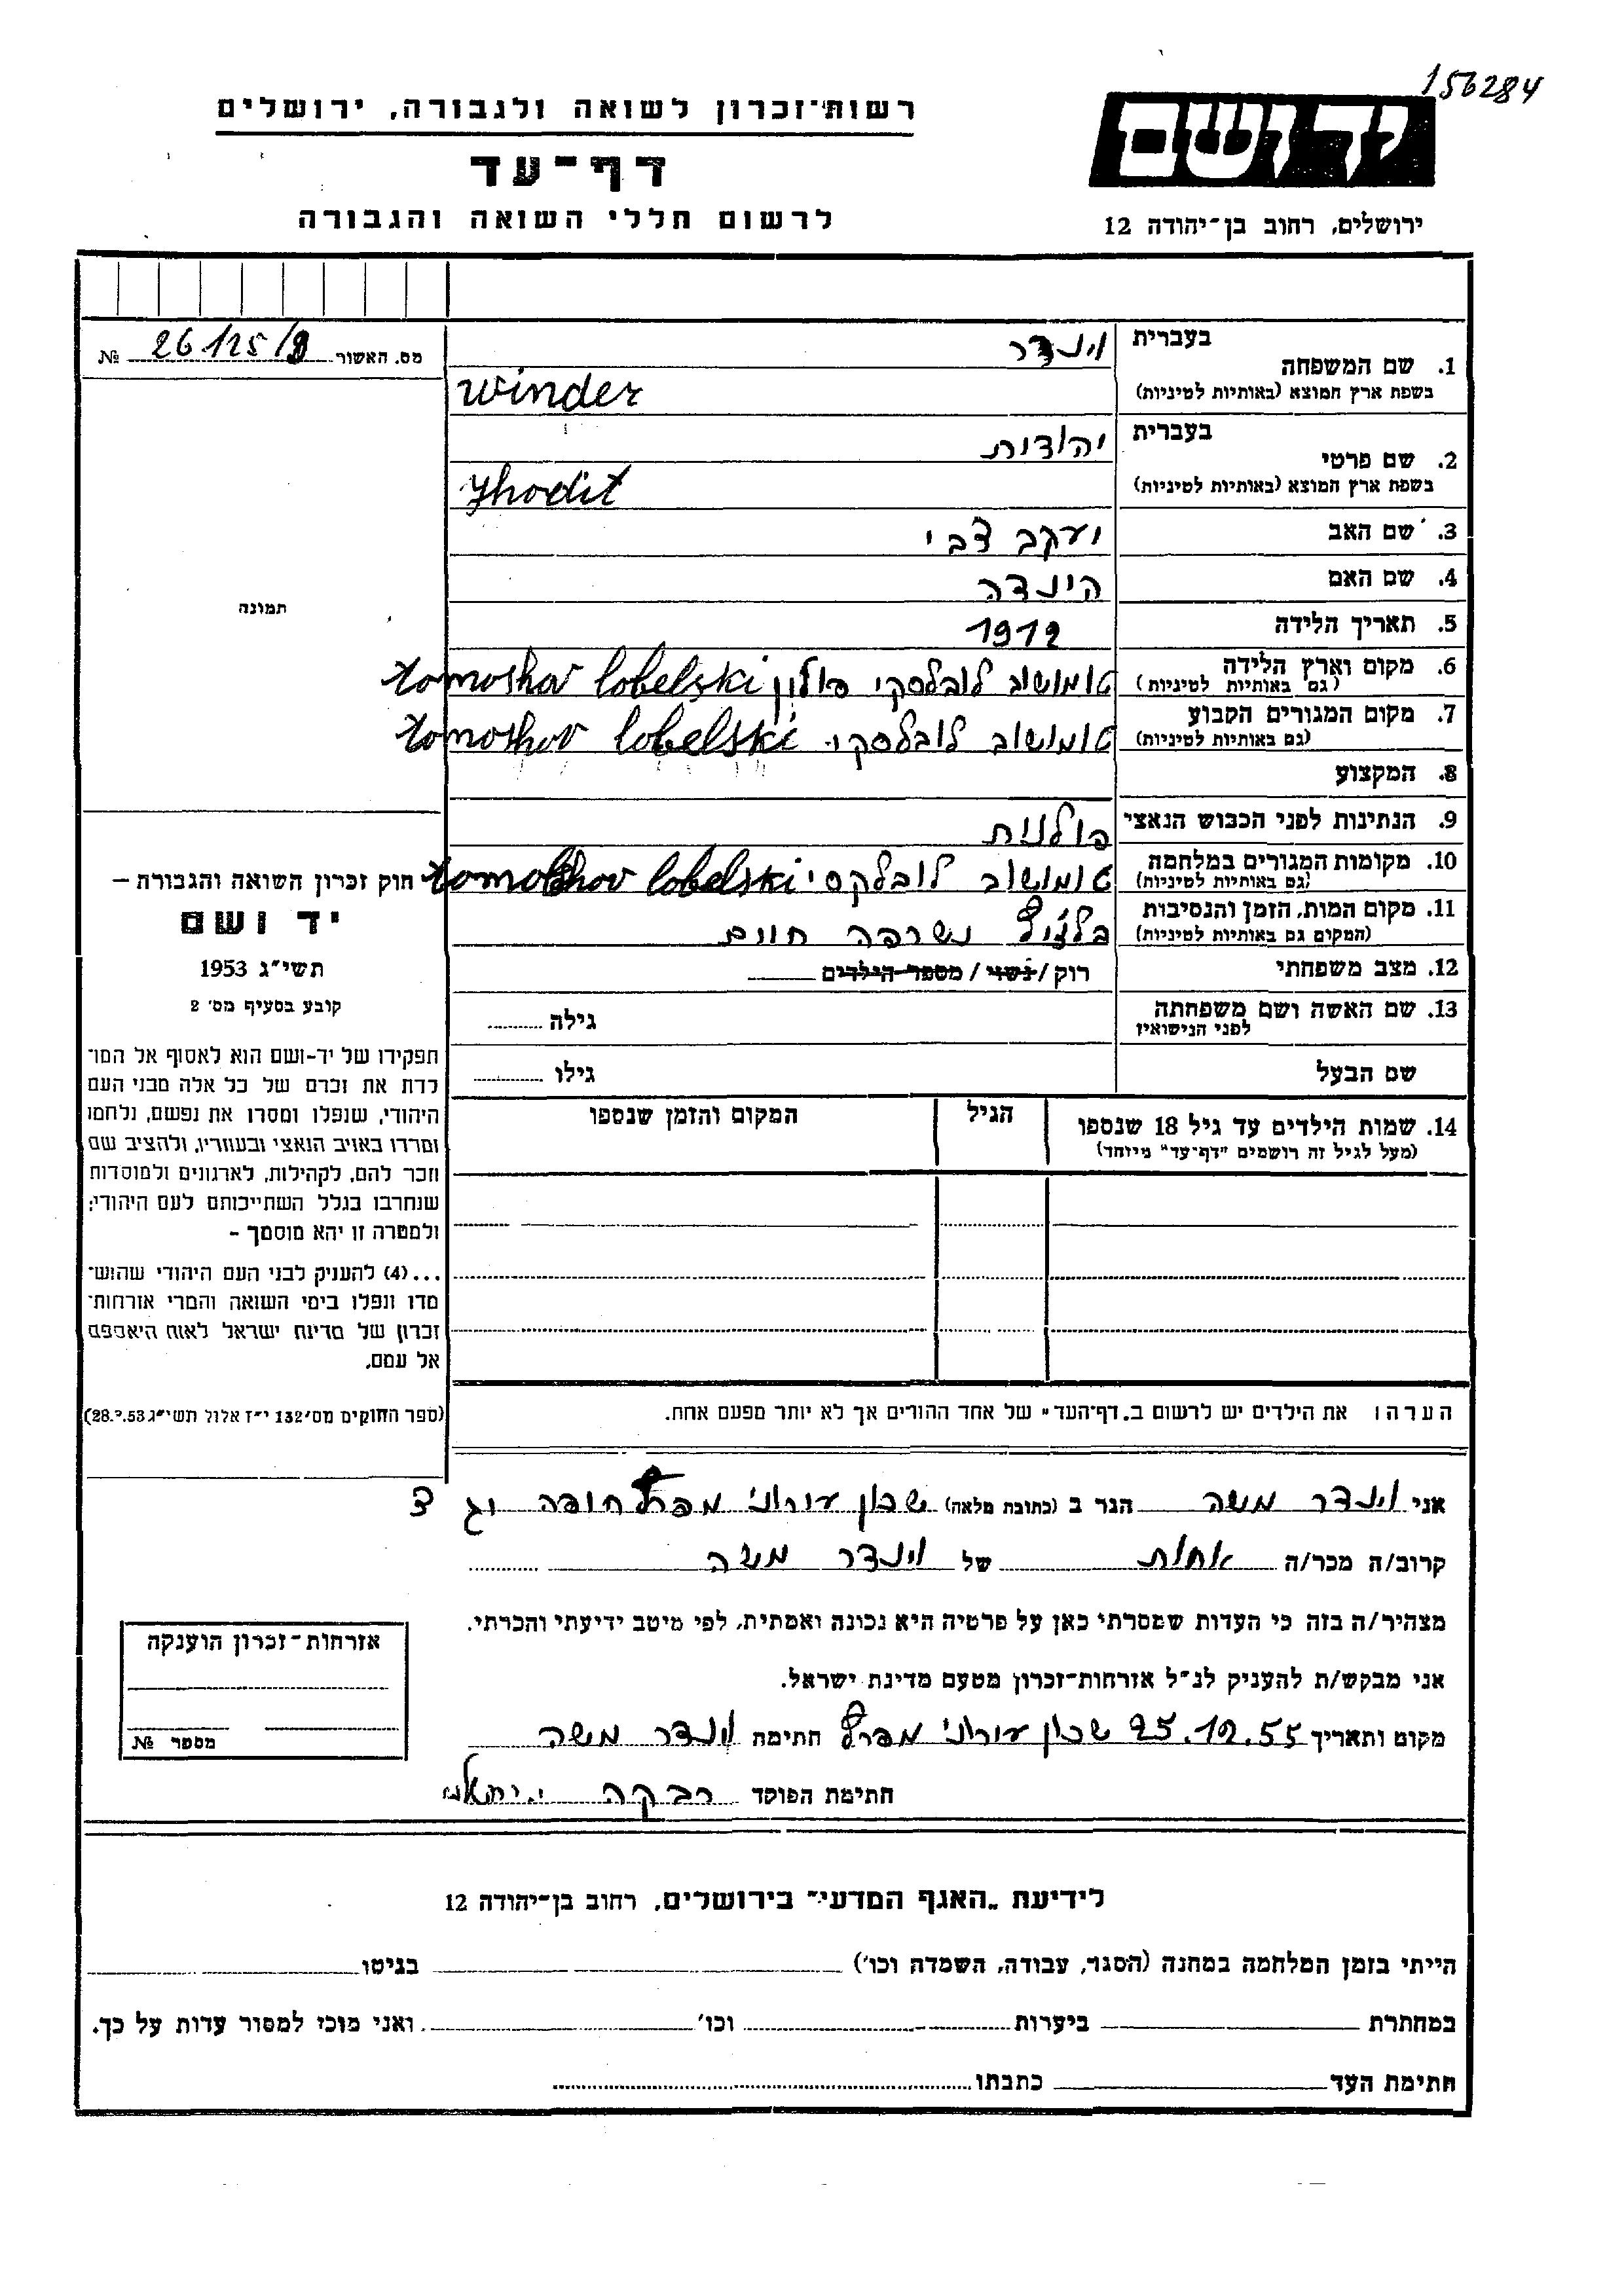 156284
ידושם
ירושלים, רחוב בן-יהודה 12
רשות-זכרון לשואה ולגבורה, ירושלים
דף-עד
לרשום חללי השואה והגבורה
מס. האשור 26125/8 №
בעברית
1. שם המשפחה
בשפת ארץ המוצא (באותיות לטיניות)
וינדר
winder
בעברית
2. שם פרטי
בשפת ארץ המוצא (באותיות לטיניות)
יהודית
yhodit
3. שם האב יעקב צבי
4. שם האם הינדה
5. תאריך הלידה 1912
6. מקום וארץ הלידה
(גם באותיות לטיניות)
טומושוב לובלסקי פולין tomoshov lobelski
7. מקום המגורים הקבוע
(גם באותיות לטיניות)
טומושוב לובלסקי tomoshov lobelski
8. המקצוע
9. הנתינות לפני הכבוש הנאצי פולנית
10. מקומות המגורים במלחמה
(גם באותיות לטיניות)
טומושוב לובלקסי tomoshov lobelski
11. מקום המות, הזמן והנסיבות
(המקום גם באותיות לטיניות)
נשרפה חיים
12. מצב משפחתי רוק / נשוי / מספר הילדים
13. שם האשה ושם משפחתה
לפני הנישואין
גילה
שם הבעל גילו
14. שמות הילדים עד גיל 18 שנספו
(מעל לגיל זה רושמים "דף-עד" מיוחד)
הגיל
המקום והזמן שנספו
תמונה
חוק זכרון השואה והגבורה –
יד ושם
תשי"ג 1953
קובע בסעיף מס' 2
תפקידו של יד-ושם הוא לאסוף אל המו־
לדת את זכרם של כל אלה מבני העם
היהודי, שנפלו ומסרו את נפשם, נלחמו
ומרדו באויב הנאצי ובעוזריו, ולהציב שם
וזכר להם, לקהילות, לארגונים ולמוסדות
שנחרבו בגלל השתייכותם לעם היהודי;
ולמטרה זו יהא מוסמך –
...(4) להעניק לבני העם היהודי שהוש־
מדו ונפלו בימי השואה והמרי אזרחות־
זכרון של מדינת ישראל לאות היאספם
אל עמם.
(ספר החוקים מס' 132 י"ז אלול תשי"ג 28.9.53)
הערה: את הילדים יש לרשום ב„דף-העד" של אחד ההורים אך לא יותר מפעם אחת.
אני וינדר משה הגר ב (כתובת מלאה) שכון עירוני מפרץ חיפה
קרוב/ה מכר/ה אחות של וינדר משה
מצהיר/ה בזה כי העדות שמסרתי כאן על פרטיה היא נכונה ואמתית, לפי מיטב ידיעתי והכרתי.
אני מבקש/ת להעניק לנ"ל אזרחות-זכרון מטעם מדינת ישראל.
מקום ותאריך 25.12.55 שכון עירוני מפרץ חתימת וינדר משה
חתימת הפוקד רבקה
אזרחות-זכרון הוענקה
מספר №
לידיעת „האגף המדעי" בירושלים, רחוב בן-יהודה 12
הייתי בזמן המלחמה במחנה (הסגר, עבודה, השמדה וכו') בגיטו
במחתרת ביערות וכו' ואני מוכן למסור עדות על כך.
חתימת העד כתבתו